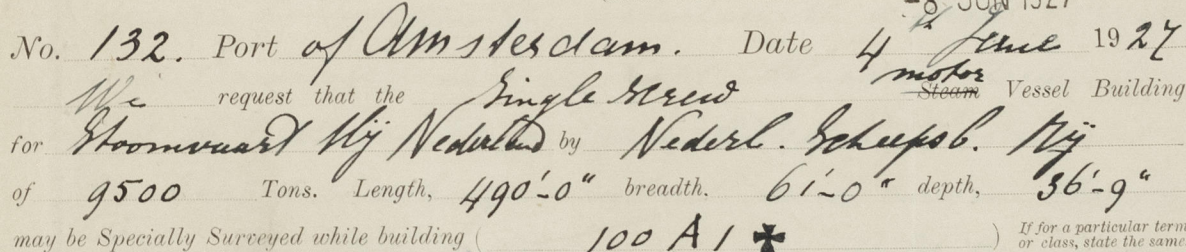 -8 JUN 1927
No. 132. Port of Amsterdam. Date 4th June 1927
We request that the Single Screw motor Steam Vessel Building
for Stoomvaart Mij Nederland by Nederl. Scheepsb. Mij
of 9500 Tons. Length, 490'-0" breadth. 61'-0" depth, 36'-9"
may be Specially Surveyed while building ( 100 A 1 ✠ ) If for a particular term
or class, state the same